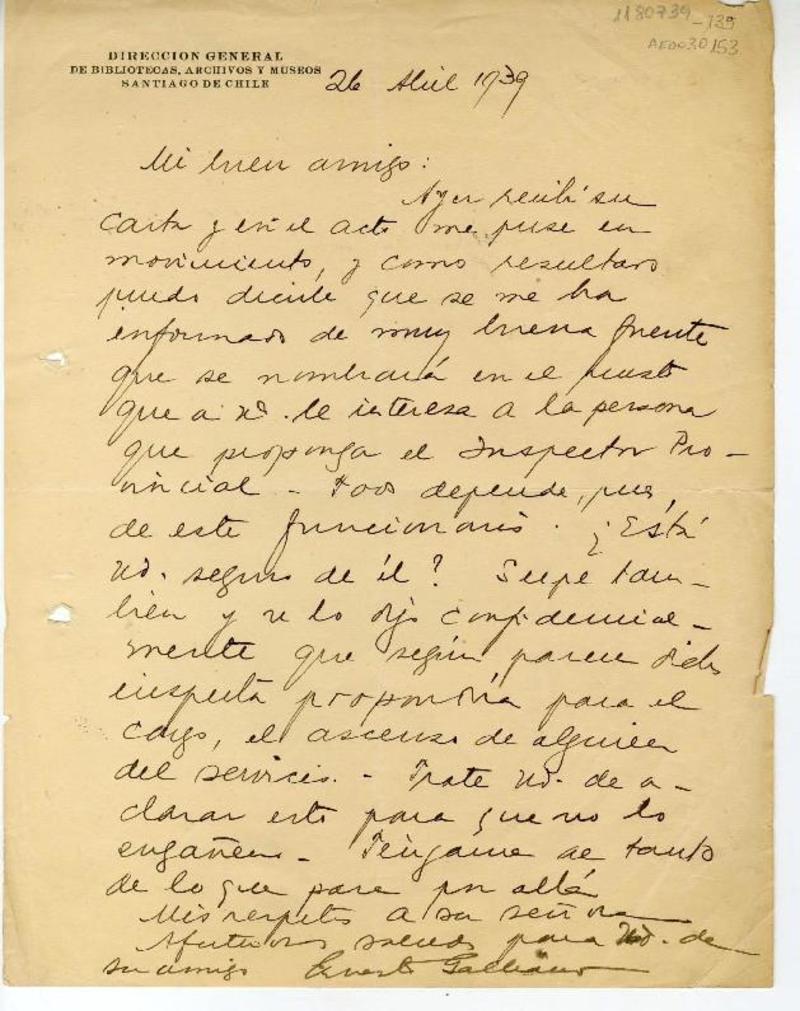 1180739 _139
AE0030153
DIRECCION GENERAL
DE BIBLIOTECAS, ARCHIVOS Y MUSEOS
SANTIAGO DE CHILE
26 Abril 1939
Mi buen amigo:
Ayer recibí su
carta y en el acto me puse en
movimiento, y como resultado
puedo decirle que se me ha
informado de muy buena fuente
que se nombrará en el puesto
que a Ud. le interesa a la persona
que proponga el Inspector Pro-
vincial - Todo depende, pues,
de este funcionario. ¿Está
Ud. seguro de él? Supe tam-
bién y se lo digo confidencial-
mente que según parece dicho
inspector propondría para el
cargo, el ascenso de alguien
del servicio. - Trate Ud. de a-
clarar esto para que no lo
engañen - Téngame al tanto
de lo que pase por allá
Mis respetos a su señora
Afectuosos saludos para Ud. de
su amigo Ernesto Galliano